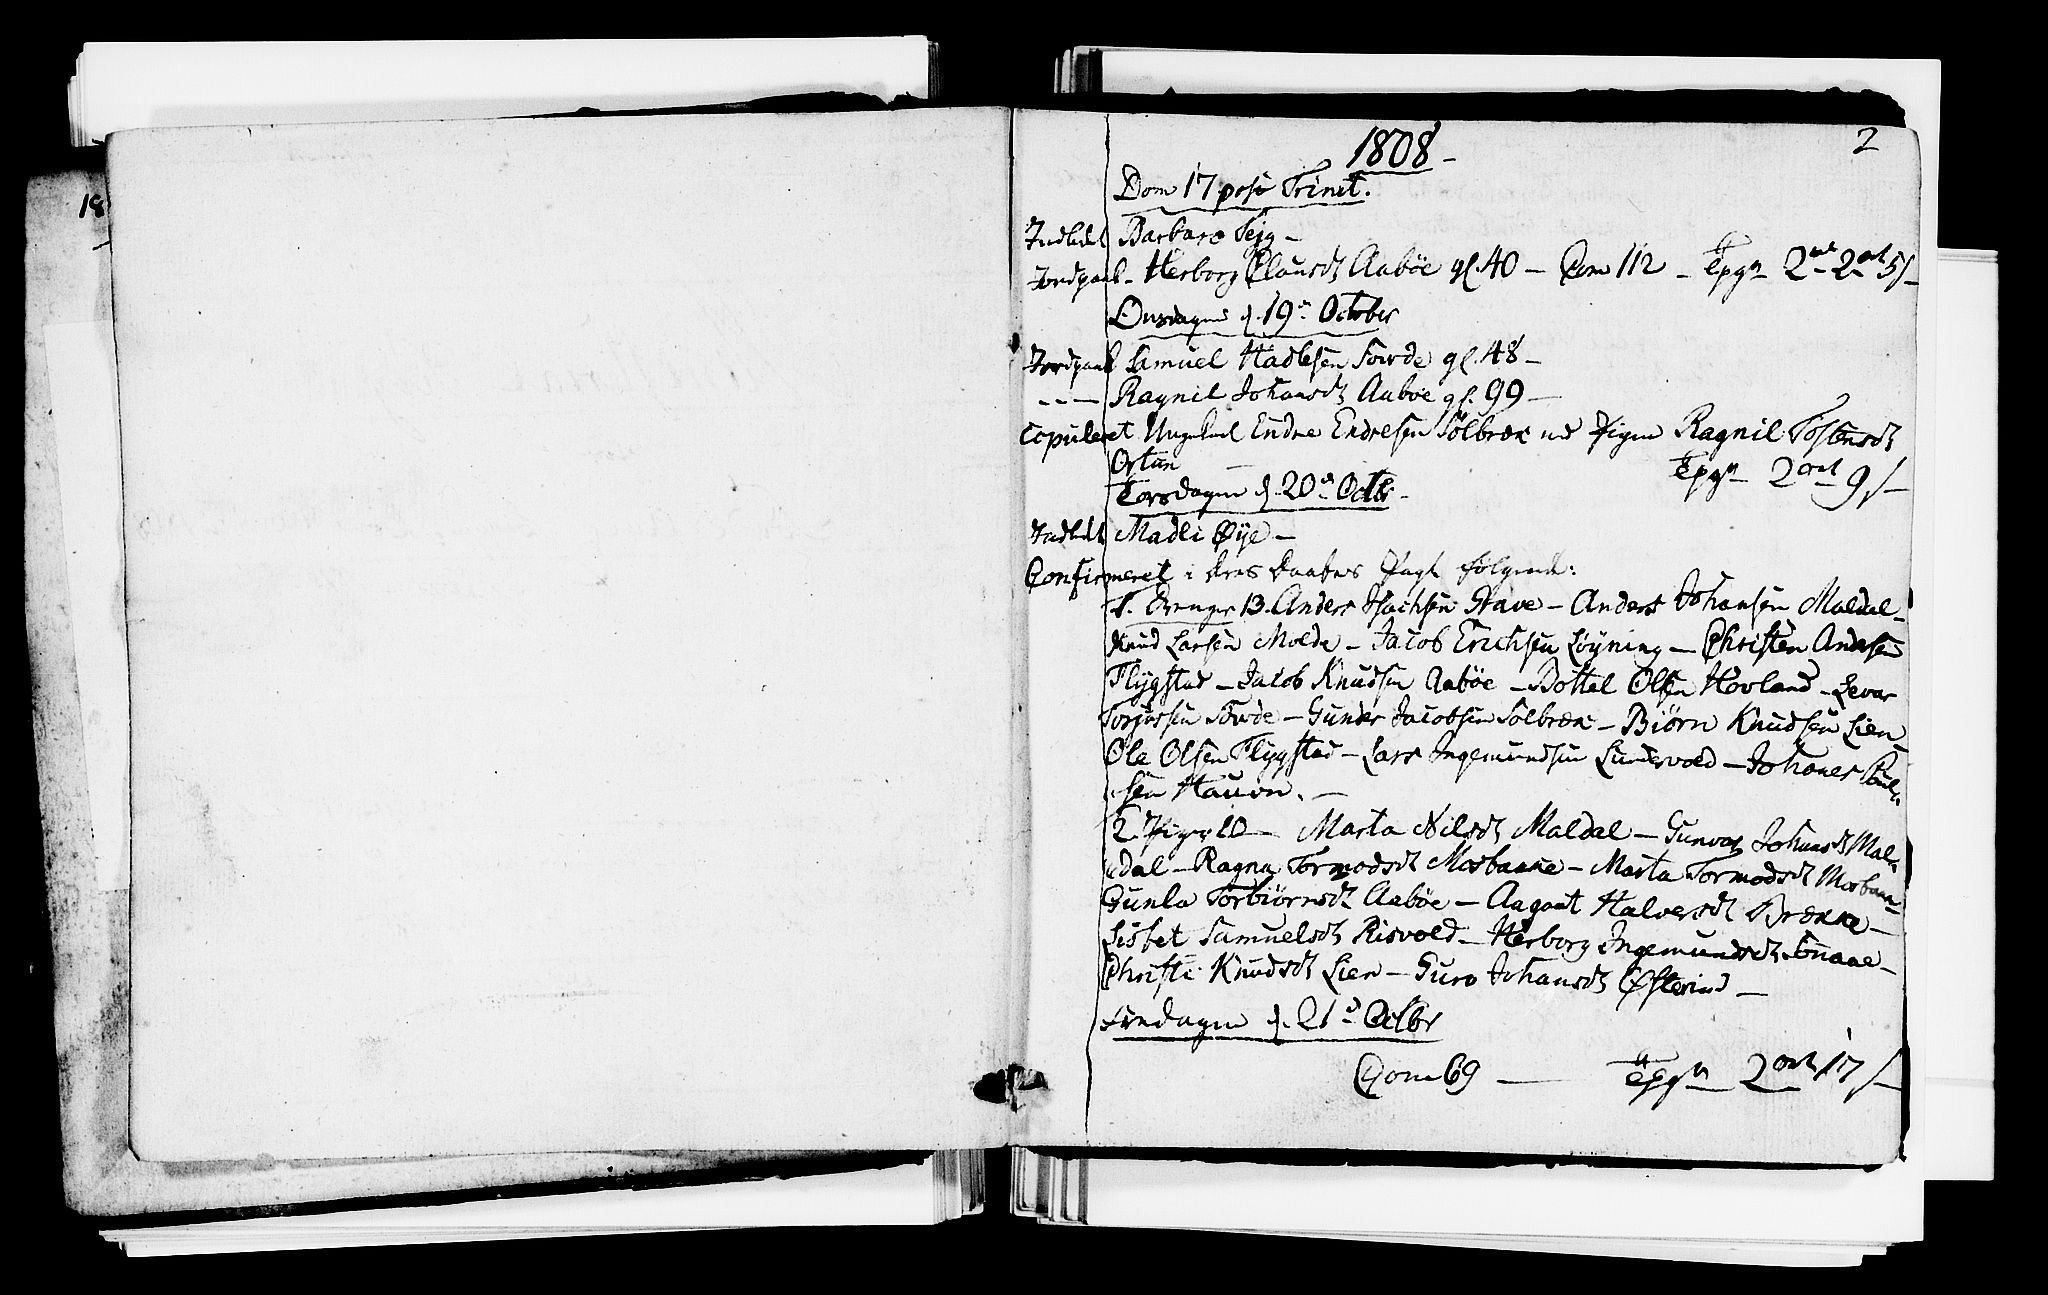 18
2
1808 -
Dom 17 post Trinit.
Indledt Barbara Tejg -
Jordpaak. Herborg Clausdt Aabøe gl. 40 - Com 112 - Tpgn 2 2ort 5/-
Onsdagen d. 19n October
Jordpaak Samuel Hadlesen Sowde gl. 48 -
- - - Ragnil Johansdt Aabøe gl. 99 -
Copuleret Ungkarl Endre Endresen Sølbræk med Pigen Ragnil Tostensdt
Ortun - Tpgn 2ort 9/-
Torsdagen d. 20d Octbr -
Indledt Madli Øye -
Confirmeret i deres Daabes Pagt følgende:
1. Drenge 13. Anders Isachsen Have - Anders Johansen Maldal -
Knud Larsen Molde - Jacob Erichsen Løyning - Christen Andersen
Flygstad - Jacob Knudsen Aabøe - Bottel Olsen Hovland - Sevar
Torjussen Sowde - Gunder Jacobsen Sølbræk - Biørn Knudsen Lien -
Ole Olsen Flygstad - Lars Ingemundsen Lundsvold - Johanes Poul-
sen Hauen. -
2. Piger 10 - Marta Nilsdt Maldal - Gunvor Johansdt Mal-
dal - Ragna Tormodsdt Mosbakke - Marta Tormodsdt Mosbakk -
Gunla Torbiørnsdt Aabøe - Aagaat Halversdt Brække -
Lisbet Samuelsdt Risvold - Herborg Ingemundsdt -
Christi Knudsdt Lien - Guro Johansdt Østerind -
d. 21d Octbr
Com 69 - Tpgn 2ort 17/-